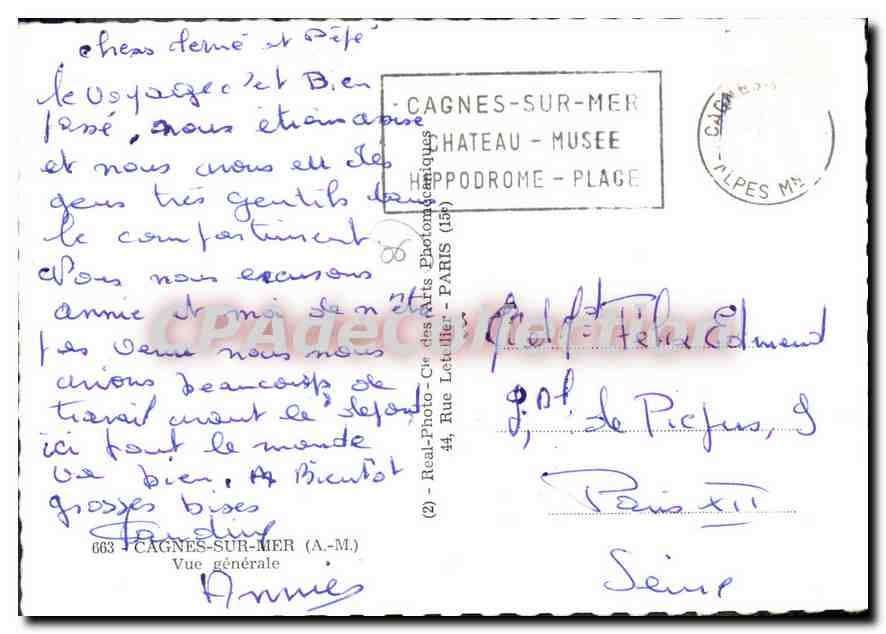 chers Mémé et Pépé
le voyage c'est Bien
passé, nous étions assise
et nous avons eu des
gens très gentils dans
le compartiment.
Vous nous excusons
annie et moi de n'être
pas venue nous nous
avions beaucoup de
travail avant le depart
ici tout le monde
va bien. A Bientôt
grosses bises
Annie
663 - CAGNES-SUR-MER (A.-M.)
Vue générale
(2) - Real-Photo - Cie des Arts Photomécaniques
44, Rue Letellier - PARIS (15e)
CAGNES-SUR-MER
CHATEAU - MUSEE
HIPPODROME - PLAGE
CAGNES
ALPES Mmes
Félix Edmond
9, de Picpus, 9
Paris XII
Seine
CPAdeCollection